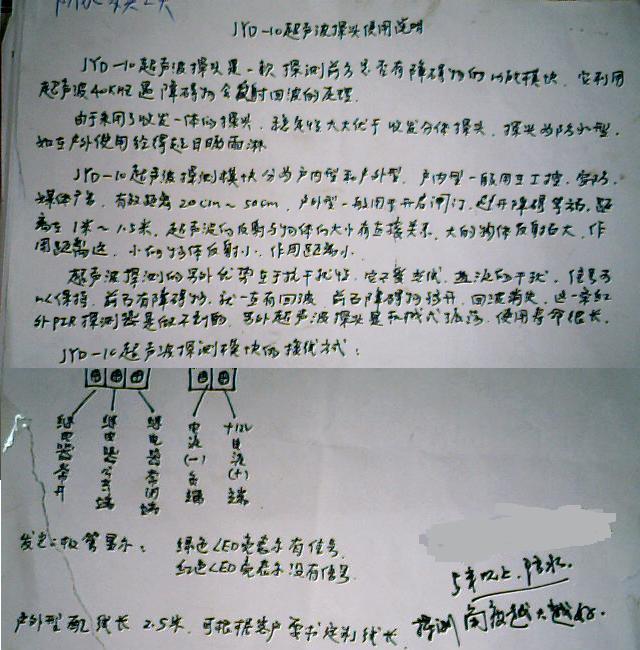 JYD-10超声波探头使用说明
JYD-10超声波探头是一款探测前方是否有障碍物的功能模块,它利用
超声波40KHZ遇障碍物会反射回波的原理.
由于采用了收发一体的探头,稳定性大大优于收发分体探头,探头为防水型,
如在户外使用经得起日晒雨淋.
JYD-10超声波探测模块分为户内型和户外型,户内型一般用于工控,安防,
媒体广告,有效距离20cm~50cm,户外型一般用于开启闸门,避开障碍等场,距
离在1米~1.5米,超声波的反射与物体的大小有直接关系,大的物体反射面大,作
用距离远,小的物体反射小,作用距离小.
超声波探测的另外优势在于抗干扰性,它不受光线,气流的干扰,信号可
以保持,前方有障碍物,就一直有回波,前方障碍物移开,回波消失,这一点红
外PIR探测器是做不到的,另外超声波探头是机械式振荡,使用寿命很长.
JYD-10超声波探测模块的接线方式:
继电器常开
继电器公共端
继电器常闭端
电源(-)负端
+12V电源(+)端
发光二极管显示: 绿色LED亮表示有信号
红色LED亮表示没有信号
5米以上.防水.
户外型配线长2.5米,可根据客户要求定制线长.
探测角度越大越好.